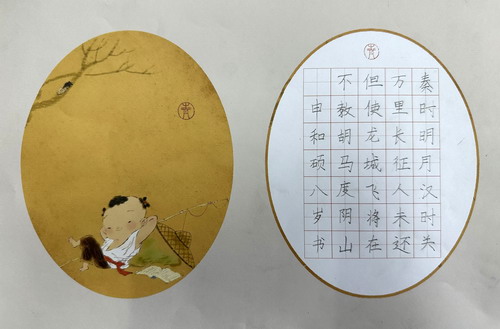 秦时明月汉时关
万里长征人未还
但使龙城飞将在
不教胡马度阴山
申和硕八岁书